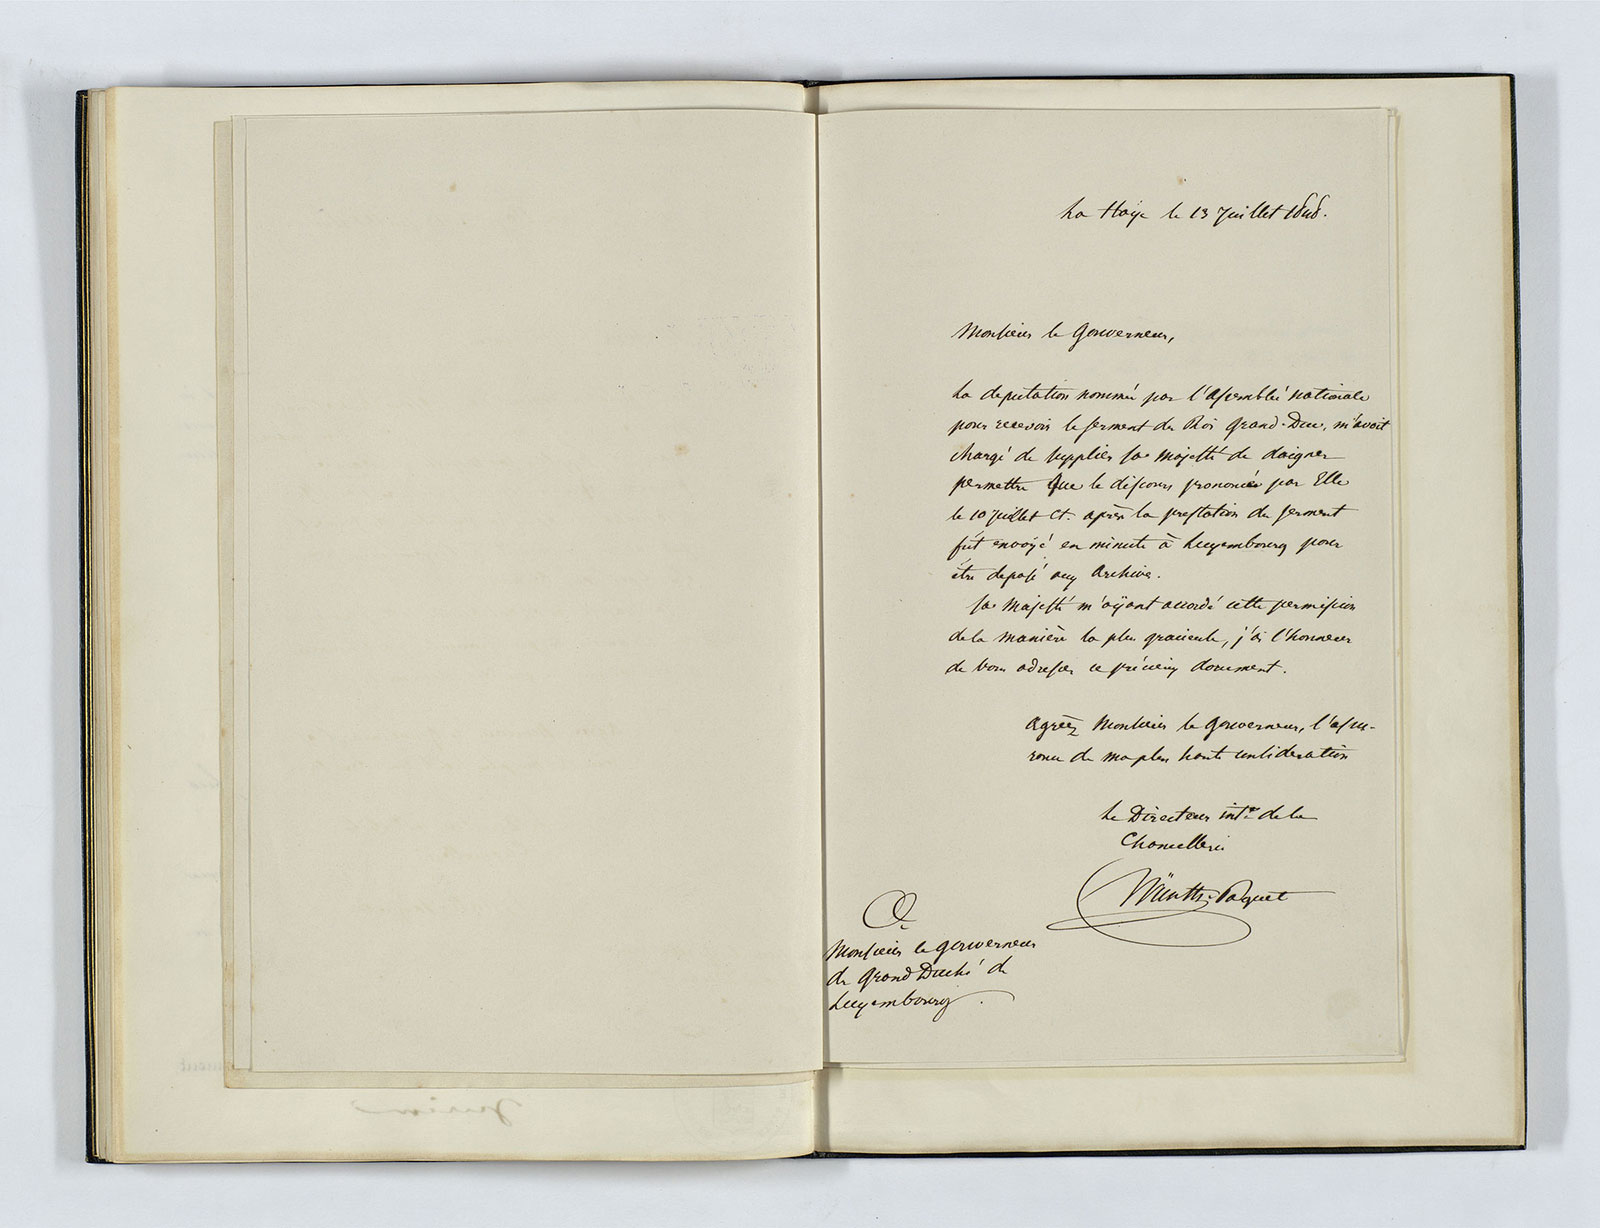 La Haÿe le 13 Juillet 1848.
Monsieur le Gouverneur,
La deputation nommée par l'Assemblée nationale
pour recevoir le serment du Roi Grand-Duc, m'avait
chargé de supplier Sa Majesté de daigner
permettre que le discours prononcé par Elle
le 10 Juillet Ct. après la prestation du serment
fût envoÿé en minute à Luxembourg pour
être deposé aux Archives.
Sa Majesté m'aÿant accordé cette permission
de la manière la plus gracieuse, j'ai l'honneur
de vous adresser ce précieux document.
Agréez Monsieur le Gouverneur, l'assu-
rance de ma plus haute consideration
Le Directeur intre de la
Chancellerie
Würth-Paquet
A
Monsieur le Gouverneur
du Grand Duché de
Luxembourg.